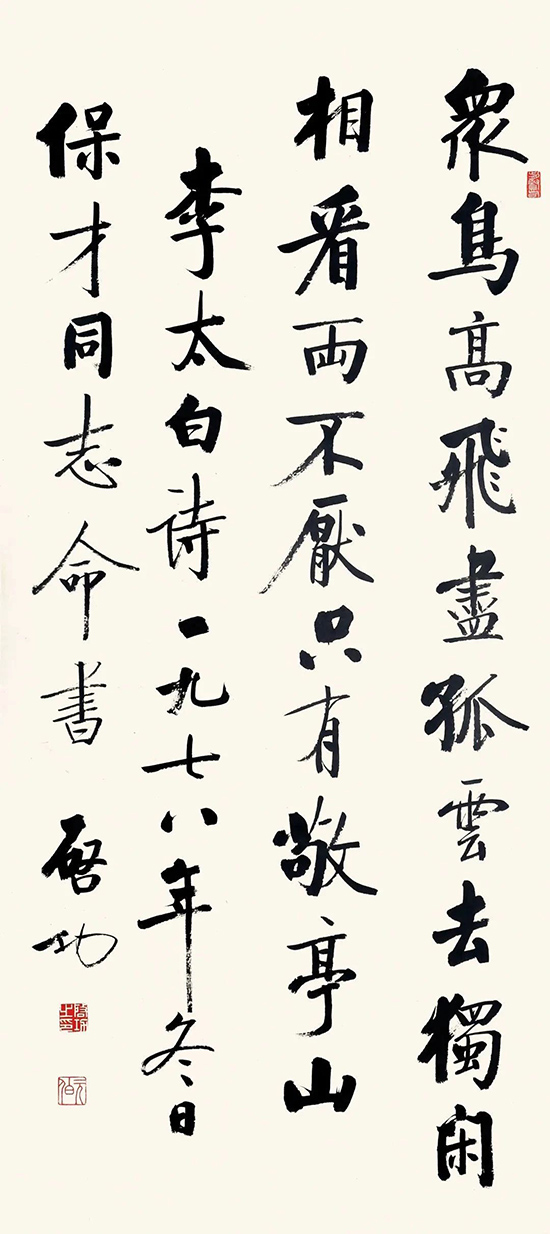 眾鳥高飛盡孤雲去獨閑
相看両不厭只有敬亭山
李太白诗一九七八年冬日
保才同志命書 啓功
啓功之印
元白